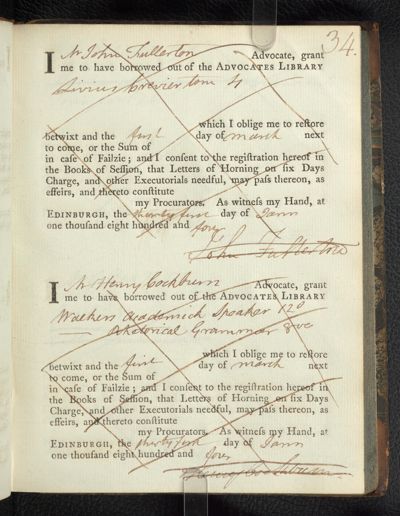 34.
I Mr John Fullerton Advocate, grant
me to have borrowed out of the ADVOCATES LIBRARY
Livius Crevier tom 4
which I oblige me to reſtore
betwixt and the first day of march next
to come, or the Sum of
in caſe of Failzie; and I conſent to the regiſtration hereof in
the Books of Seſſion, that Letters of Horning on ſix Days
Charge, and other Executorials needful, may paſs thereon, as
effeirs, and thereto conſtitute
my Procurators. As witneſs my Hand, at
EDINBURGH, the thirty first day of Janry
one thouſand eight hundred and four
John Fullerton
I Mr Henry Cockburn Advocate, grant
me to have borrowed out of the ADVOCATES LIBRARY
Walkers Academick Speaker 12o
Rhetorical Grammar 8vo
which I oblige me to reſtore
betwixt and the first day of march next
to come, or the Sum of
in caſe of Failzie; and I conſent to the regiſtration hereof in
the Books of Seſſion, that Letters of Horning on ſix Days
Charge, and other Executorials needful, may paſs thereon, as
effeirs, and thereto conſtitute
my Procurators. As witneſs my Hand, at
EDINBURGH, the thirty first day of Janry
one thouſand eight hundred and four
Henry Cockburn